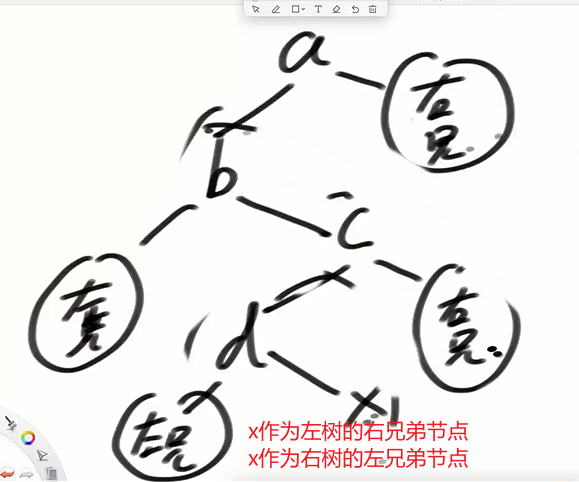 a
右兄
b
c
左兄
右兄
d
左兄
x
x作为左树的右兄弟节点
x作为右树的左兄弟节点